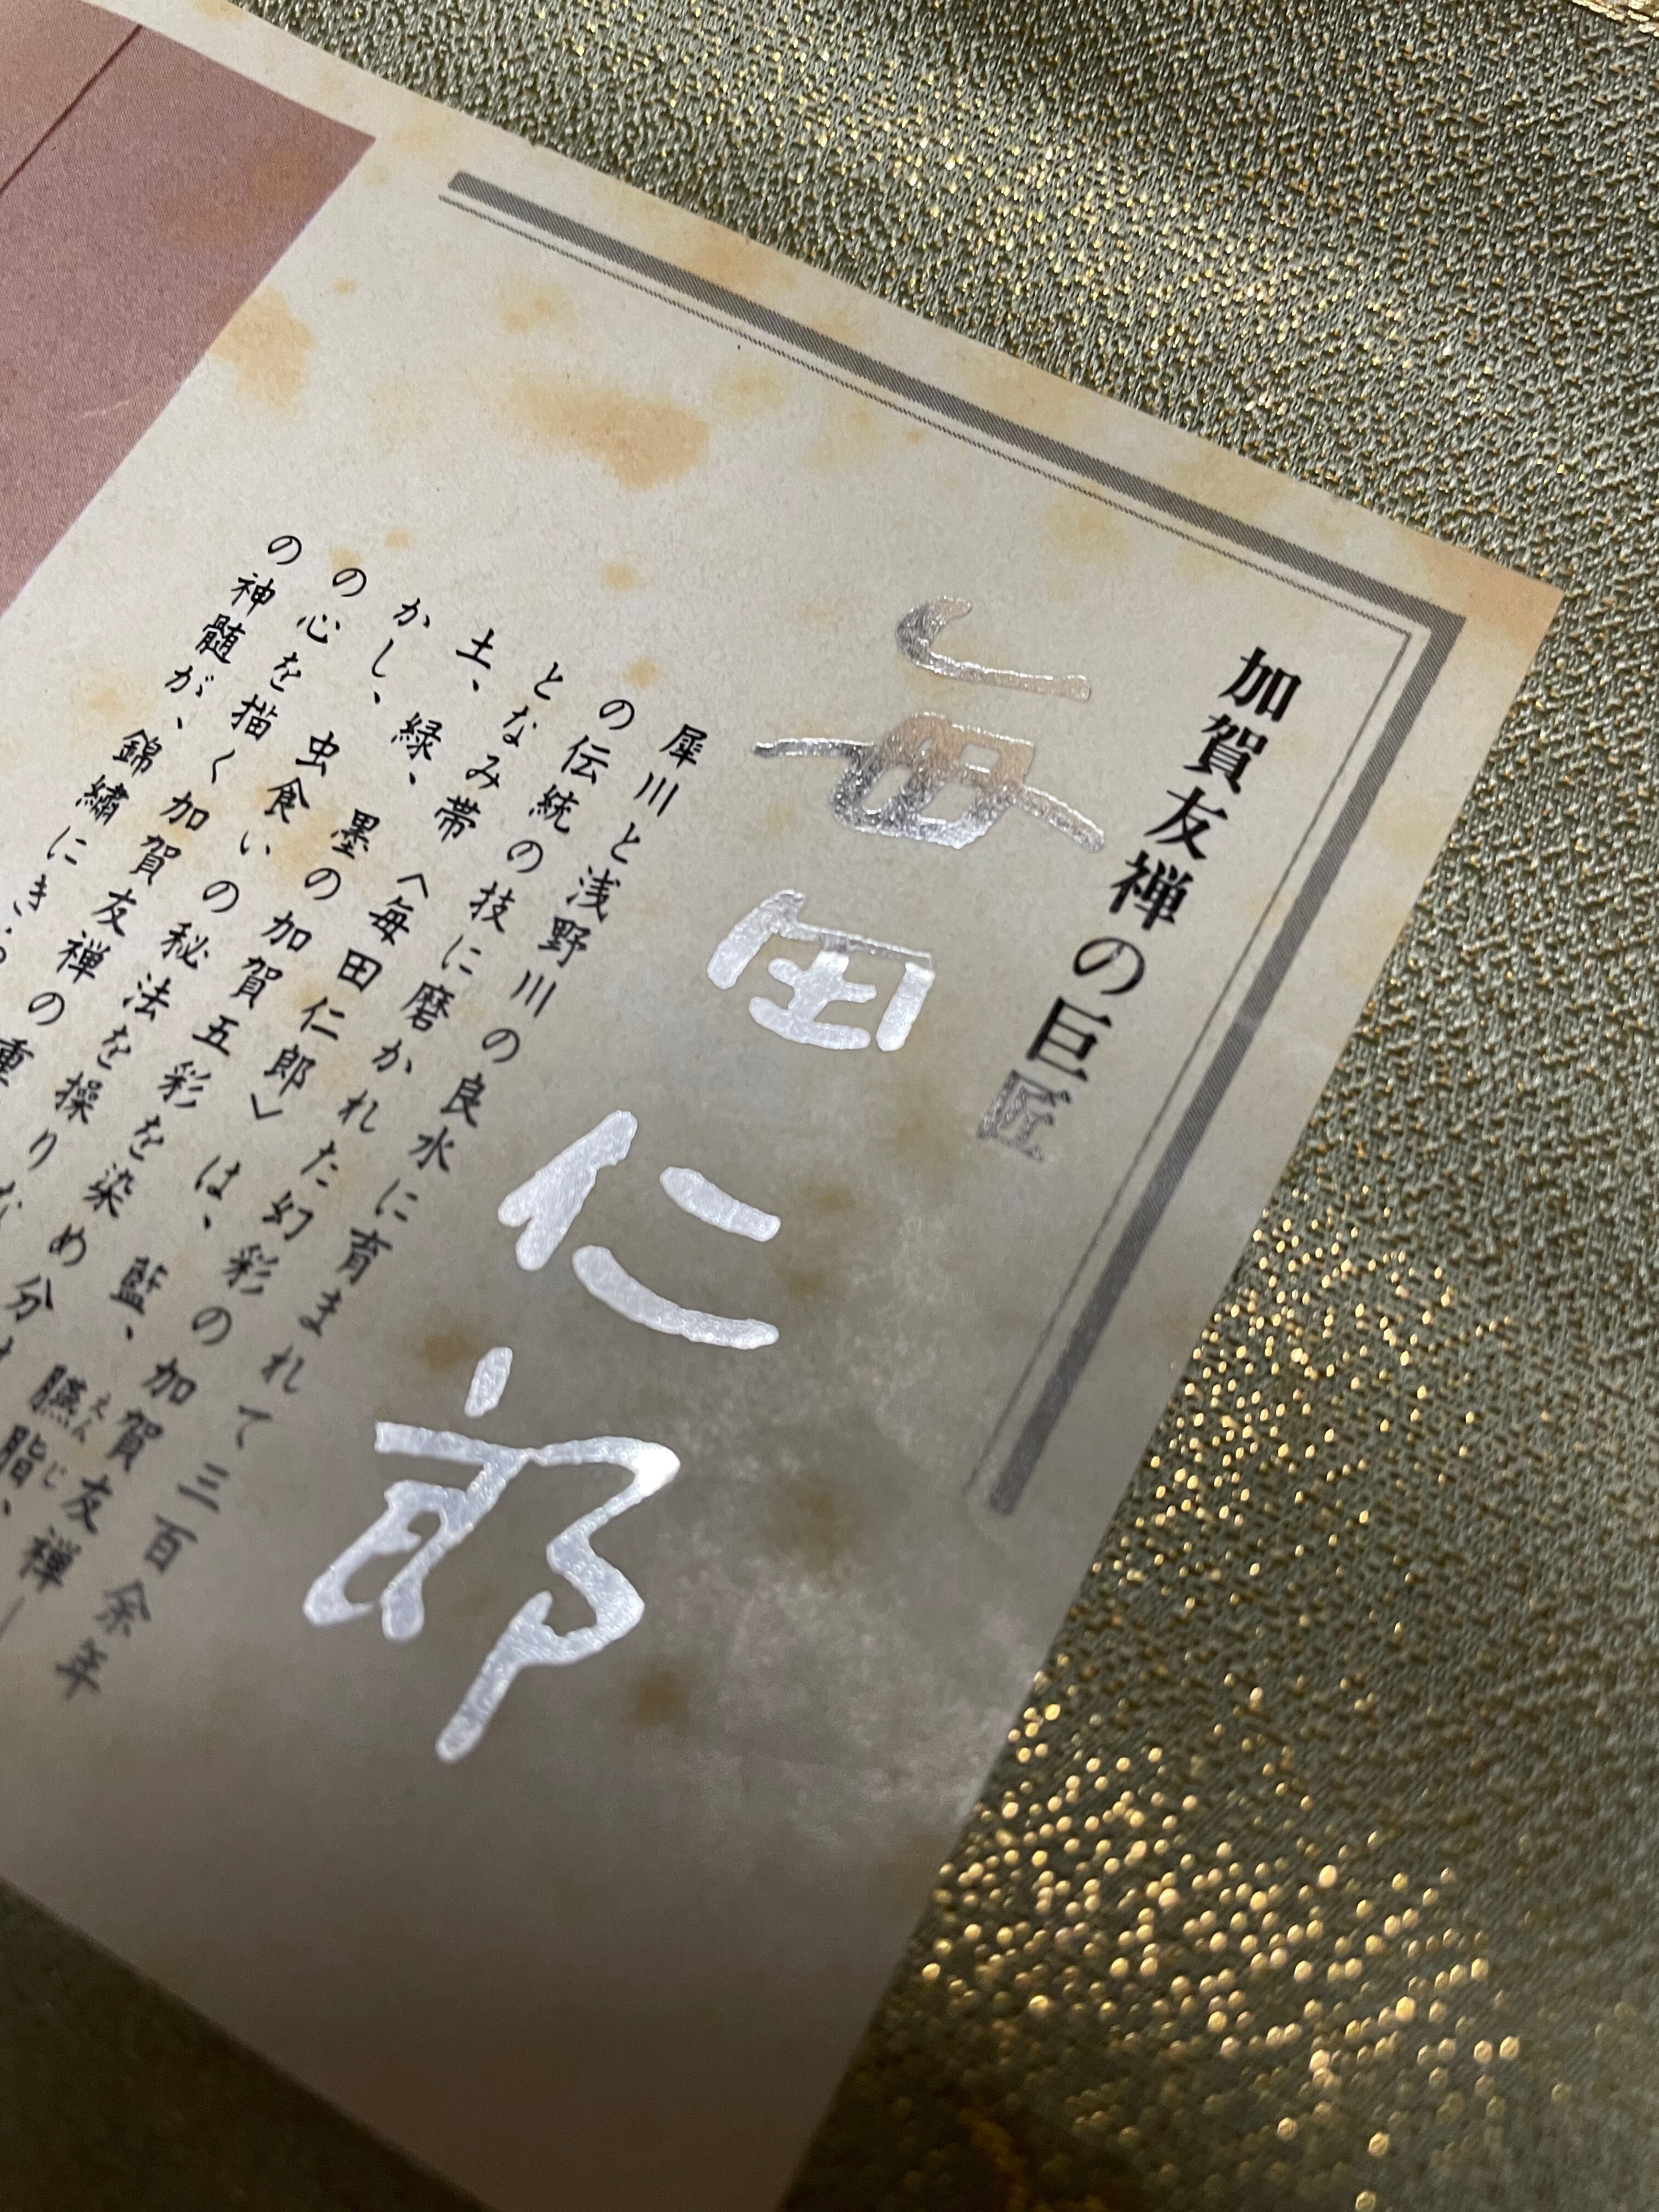 加賀友禅の巨匠
毎田仁郎
犀川と浅野川の良水に育まれて三百余年
の伝統の技に磨かれた幻彩の加賀友禅―
となみ帯〈毎田仁郎〉は、藍、臙脂、
土、緑、墨の加賀五彩を染め分
かし、虫食いの秘法を操りな
の心を描く加賀友禅の重
の神髄が、錦繍にき
えんじ